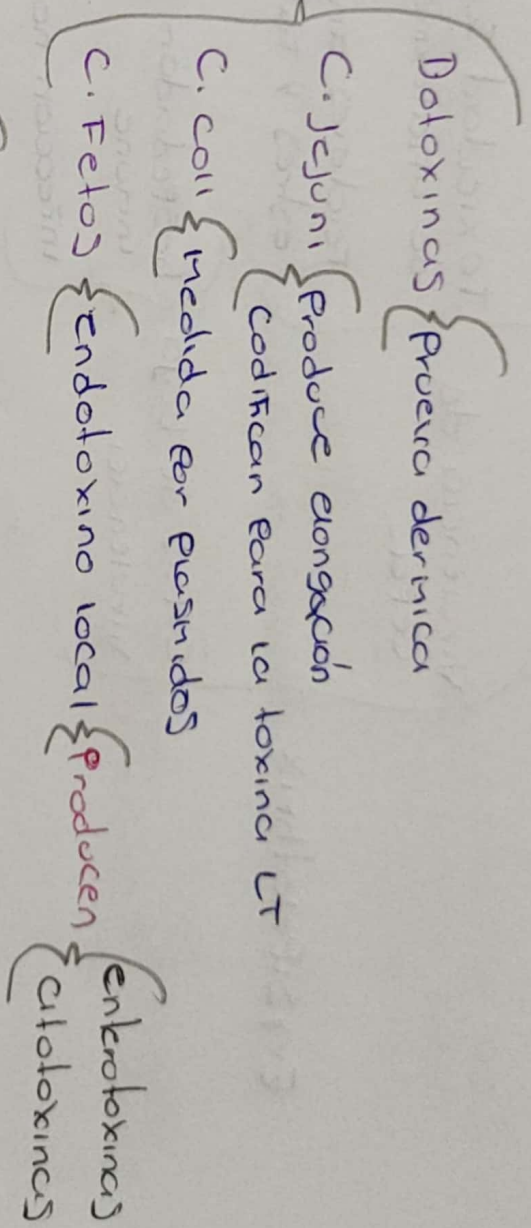 Dotoxinas { Prueva dermica
C. Jejuni { Produce elongación
codifican para la toxina LT
C. coli { Medida por plasmidos
C. Fetos { Endotoxino local { Producen { enterotoxinas
citotoxinas